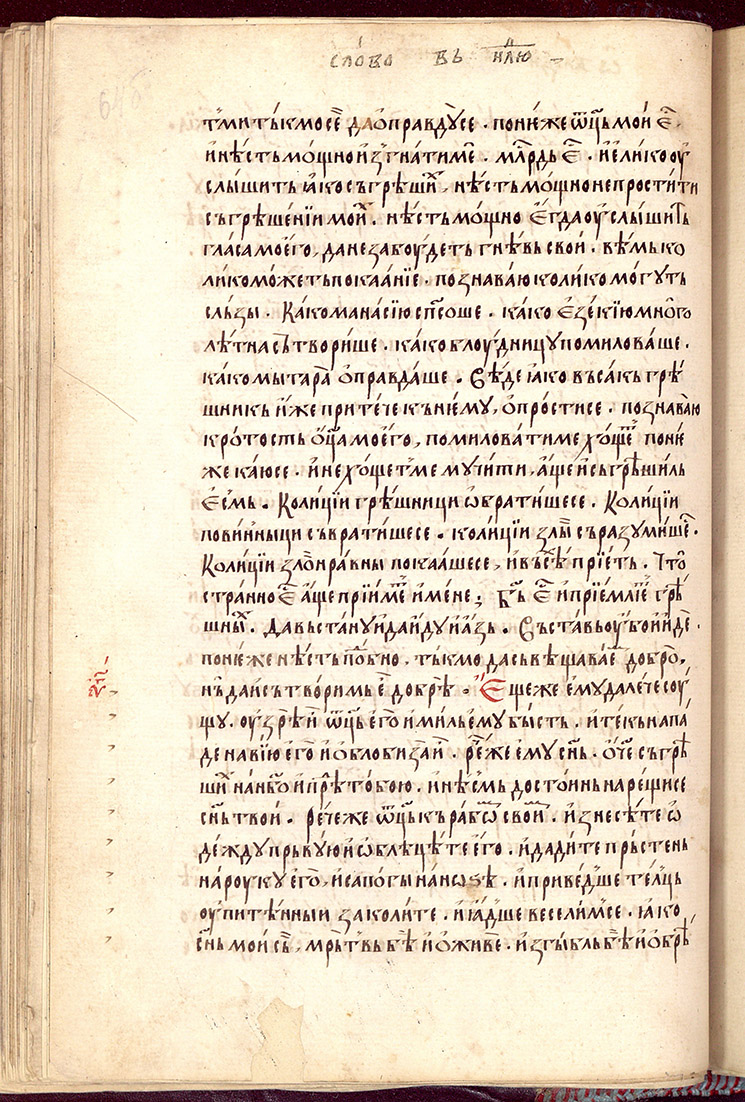 сло́во въ нл҃ю
тми ты́кмо се҆ да ѻ҆правдꙋ́се · поне́же ѿц҃ь мо́и є҆́ ·
и҆ нѣ́сть мо́щно и҆згна́ти ме · млⷭ҇рдь є҆́ · и҆ є҆ли́ко ѹ҆
слы́шить ꙗ҆́ко съгрѣши́х, нѣ́сть мо́щно не прости́ти
съгрѣше́нїи мои́х · нѣ́сть мо́щно є҆гда̀ ѹ҆слы́шить
гла́са моє҆го̀, да не забѹ́деть гнѣ́вь сво́и · вѣ́мь ко
ли́ко мо́жеть покаа́нїе · познава́ю коли́ко мо́гуть
слъ́зы · Ка́ко манасі́ю сп҃соше · ка́ко є҆зекі́ю мно́го
лѣ́тна сътвори́ше · ка́ко блѹдни́цꙋ помилова́ше ·
ка́ко мытара̀ ѻ҆правда́ше · Вѣ́де ꙗ҆́ко въса́кь грѣ́
шникь и҆́же прите́че къ нїе́мꙋ, ѻ҆прости́се · познава́ю
кро́тость ѻ҆ц҃а моє҆́го, помилова́ти ме хо́щеть поне́
же ка́юсе · и҆ не хо́щеть ме мꙋ́чити, а҆́ще и҆ съгрѣши́ль
є҆́смь · Коли́ци грѣ́шници ѡ҆брати́шесе · Коли́ци
пови́нныци съврати́шесе · коли́ци злы́ съразꙋми́ше ·
Коли́ци злонра́вны покаа́шесе, и҆ въсѣ́ прїе́ть · Что̀
стра́нно є҆́ а҆́ще прїи́меть и҆ ме́не ; Б҃ь є҆́ и҆ прїе́млеть грѣ́
шных · Да въста́нꙋ и҆ да и҆дꙋ̀ и҆ а҆́зь · Въста́вь ѹ҆́бо и҆ и҆́де ·
поне́же нѣ́сть пⷣобно · ты́кмо да съвѣща́ваеть добро̀,
нъ да и҆ сътвори́мь є҆́ до́брѣ · Е҆ще́же є҆мꙋ̀ дале́че сѹ́
щꙋ · ѹ҆зрѣ́ и҆ ѿц҃ь є҆го̀ и҆ ми́ль є҆мꙋ̀ бы́сть · и҆ те́кь напа́
де на ві́ю є҆го̀ и҆ ѻ҆блобиза̀ и҆ · ре́же є҆мꙋ̀ сн҃ь · ѻ҆́ч҃е съгрѣ
ши́х на нб҃о и҆ прѣⷣ тобо́ю · и҆ нѣ́смь досто́инь нарещи́се
сн҃ь тво́и · ре́че же ѿц҃ь къ рабѡ́м свои́м · и҆знесѣ́те ѡ҆
де́ждꙋ пръ́вꙋю и҆ ѡ҆блѣцѣ́те є҆го̀ · и҆ дади́те пръ́стень
на рѹ́кꙋ є҆го̀, и҆ сапо́гы на но́ѕѣ · и҆ приве́дше теле́ць
ѹ҆пите́нныи заколи́те · и҆ ꙗ҆́дше весели́мсе · ꙗ҆́ко
сн҃ь мо́и сь, мръ́твь бѣ̀ и҆ ѻ҆жи́ве · и҆згы́бль бѣ̀ и҆ ѻ҆брѣ́